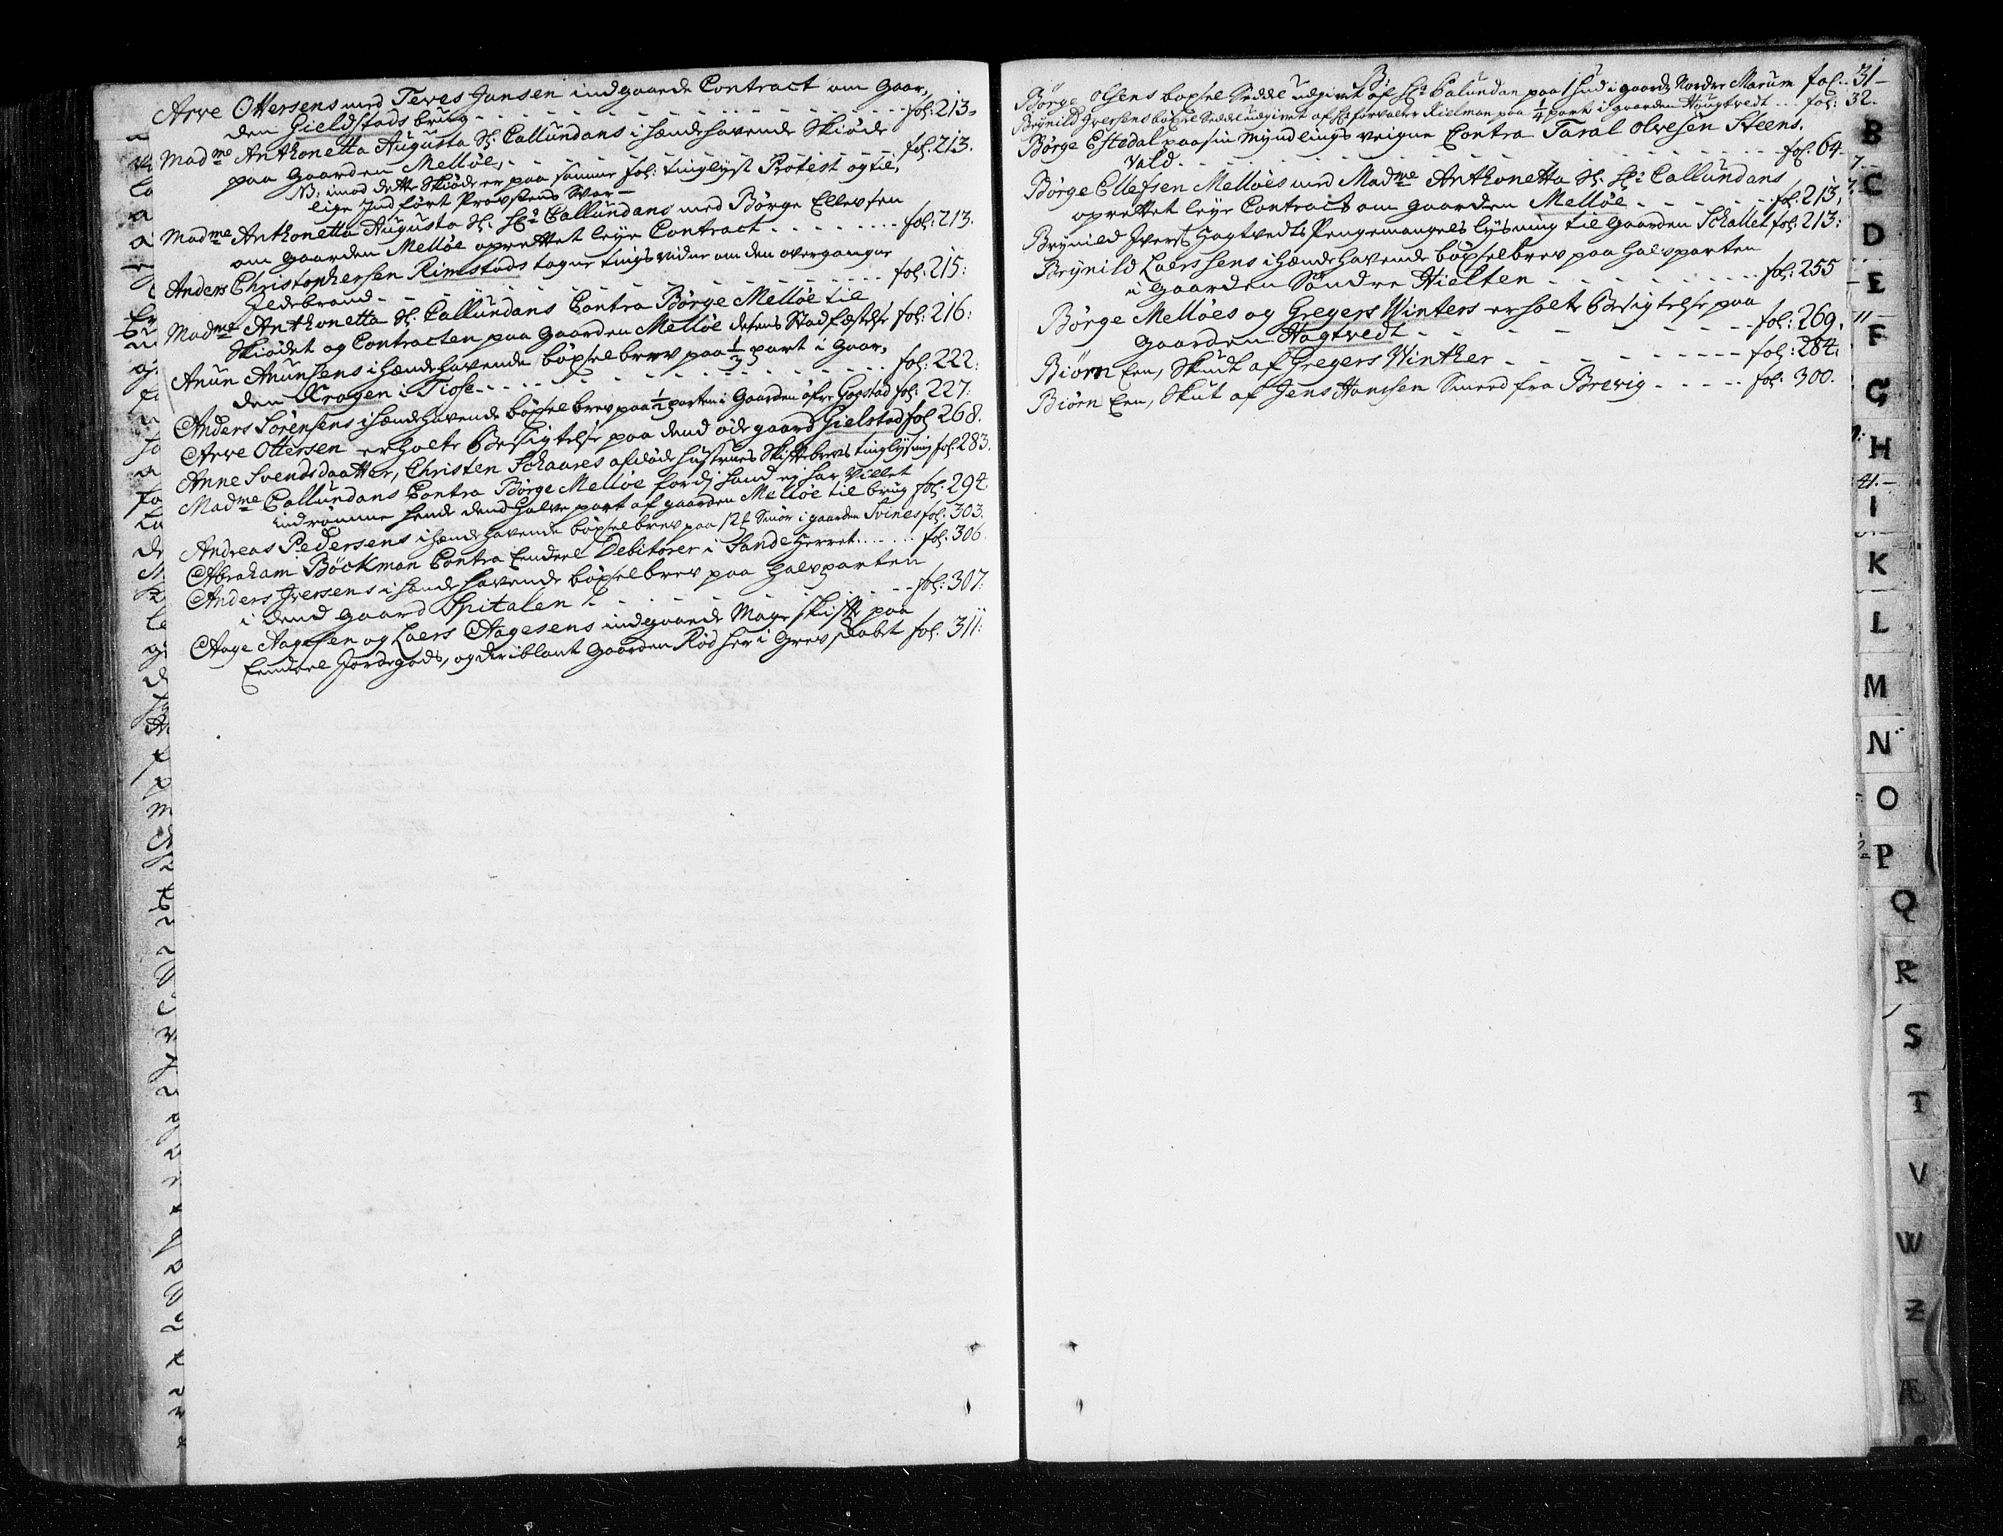 Arve Ottersens med Teves Jansen indgaaede Contract om Gaar,
den Gieldstads brug - - - fol: 213.
Madme Anthonetta Augusta Sl. Callundans i hænde havende Skiøde
paa Gaarden Melløe, - - - fol. 213.
NB: imod dette Skiøde er paa samme fol: tinglyst Protest og til,
lige Indført Provstens War-
Madme Anthonetta Augusta Sl. Hr: Callundans med Børge Ellevsen
om gaarden Melløe oprettet leye Contract - - - fol: 213.
Anders Christophersen Rimstads tagne tings vidne om den overgangne
Ildebrand - - - fol: 215:
Madme Anthonetta Sl. Callundans Contra Børge Melløe til
Skiødet og Contracten paa gaarden Melløe desens Stadfæstelse fol: 216:
Anun Anunsens i hænde havende bøxsel brev paa 1/3 part i Gaar,
den Kragen i Tiose - - - fol: 222:
Anders Sørensens i hænde havende bøxsel brev paa 1/2 parten i Gaarden øfre Gogstad fol: 227:
Arve Ottersen erholte Besigtelse paa dend øde gaard Gielstad fol 268.
Anne Svendsdaatter, Christen Schaares afdøde hustrues Skiftebrevs tinglysning fol: 283.
Madme Callundans Contra Børge Melløe fordj hand ej har villet
indrømme hende dend halve part af gaarden Melløe til brug fol: 294
Andreas Pedersens i hænde havende bøxsel brev paa 12 t Smør i gaarden Svines fol: 303.
Abraham Böckman Contra Eendeel Debitorer i Sande Herret - - - fol: 306.
Anders Iversens i hænde havende bøxsel brev paa halvparten
i dend gaard Spitalen - - - fol: 307:
Aage Aagesen og Laers Aagesens indgaaede Mage skifte paa
Eendeel Jordegods, og deriblant Gaarden Rød her i Grevskabet fol: 311:
B.
Børge Olsens bøxsel Seddel udgivet af Hr: Calundan paa 1 hud i gaard Nordre Marum fol: 31-
Brynild Iversens bøxsel Seddel udgivet af Hr forvalter Kielman paa 1/4 part i gaarden Hougtvedt - - - fol: 32.
Børge Estedal paa sin Myndlings veigne Contra Taral Olvesen Steens,
vald - - - fol. 64
Børge Ellefsen Melløes med Madme Anthonetta Sl. Hr: Callundans
oprettet leye Contract om gaarden Melløe - - - fol. 213,
Brynild Ivers Hagtvedts Pengemangels lysning til gaarden Schallet fol: 213:
Brynild Laerssens i hænde havende bøxsel brev paa halvparten
i gaarden Søndre Hielten - - - fol: 255
Børge Melløes og Gregers Winters erholt Besigtelse paa
gaarden Hagtved - - - fol: 269.
Biørn Een, Skudt af Gregers Winther - - - fol: 284:
Biørn Een, Skut af Jens Hansen Smeed fra Brevig - - - fol: 300.
B
C
D
E
F
G
H
I
K
L
M
N
O
P
Q
R
S
T
V
W
Z
Æ